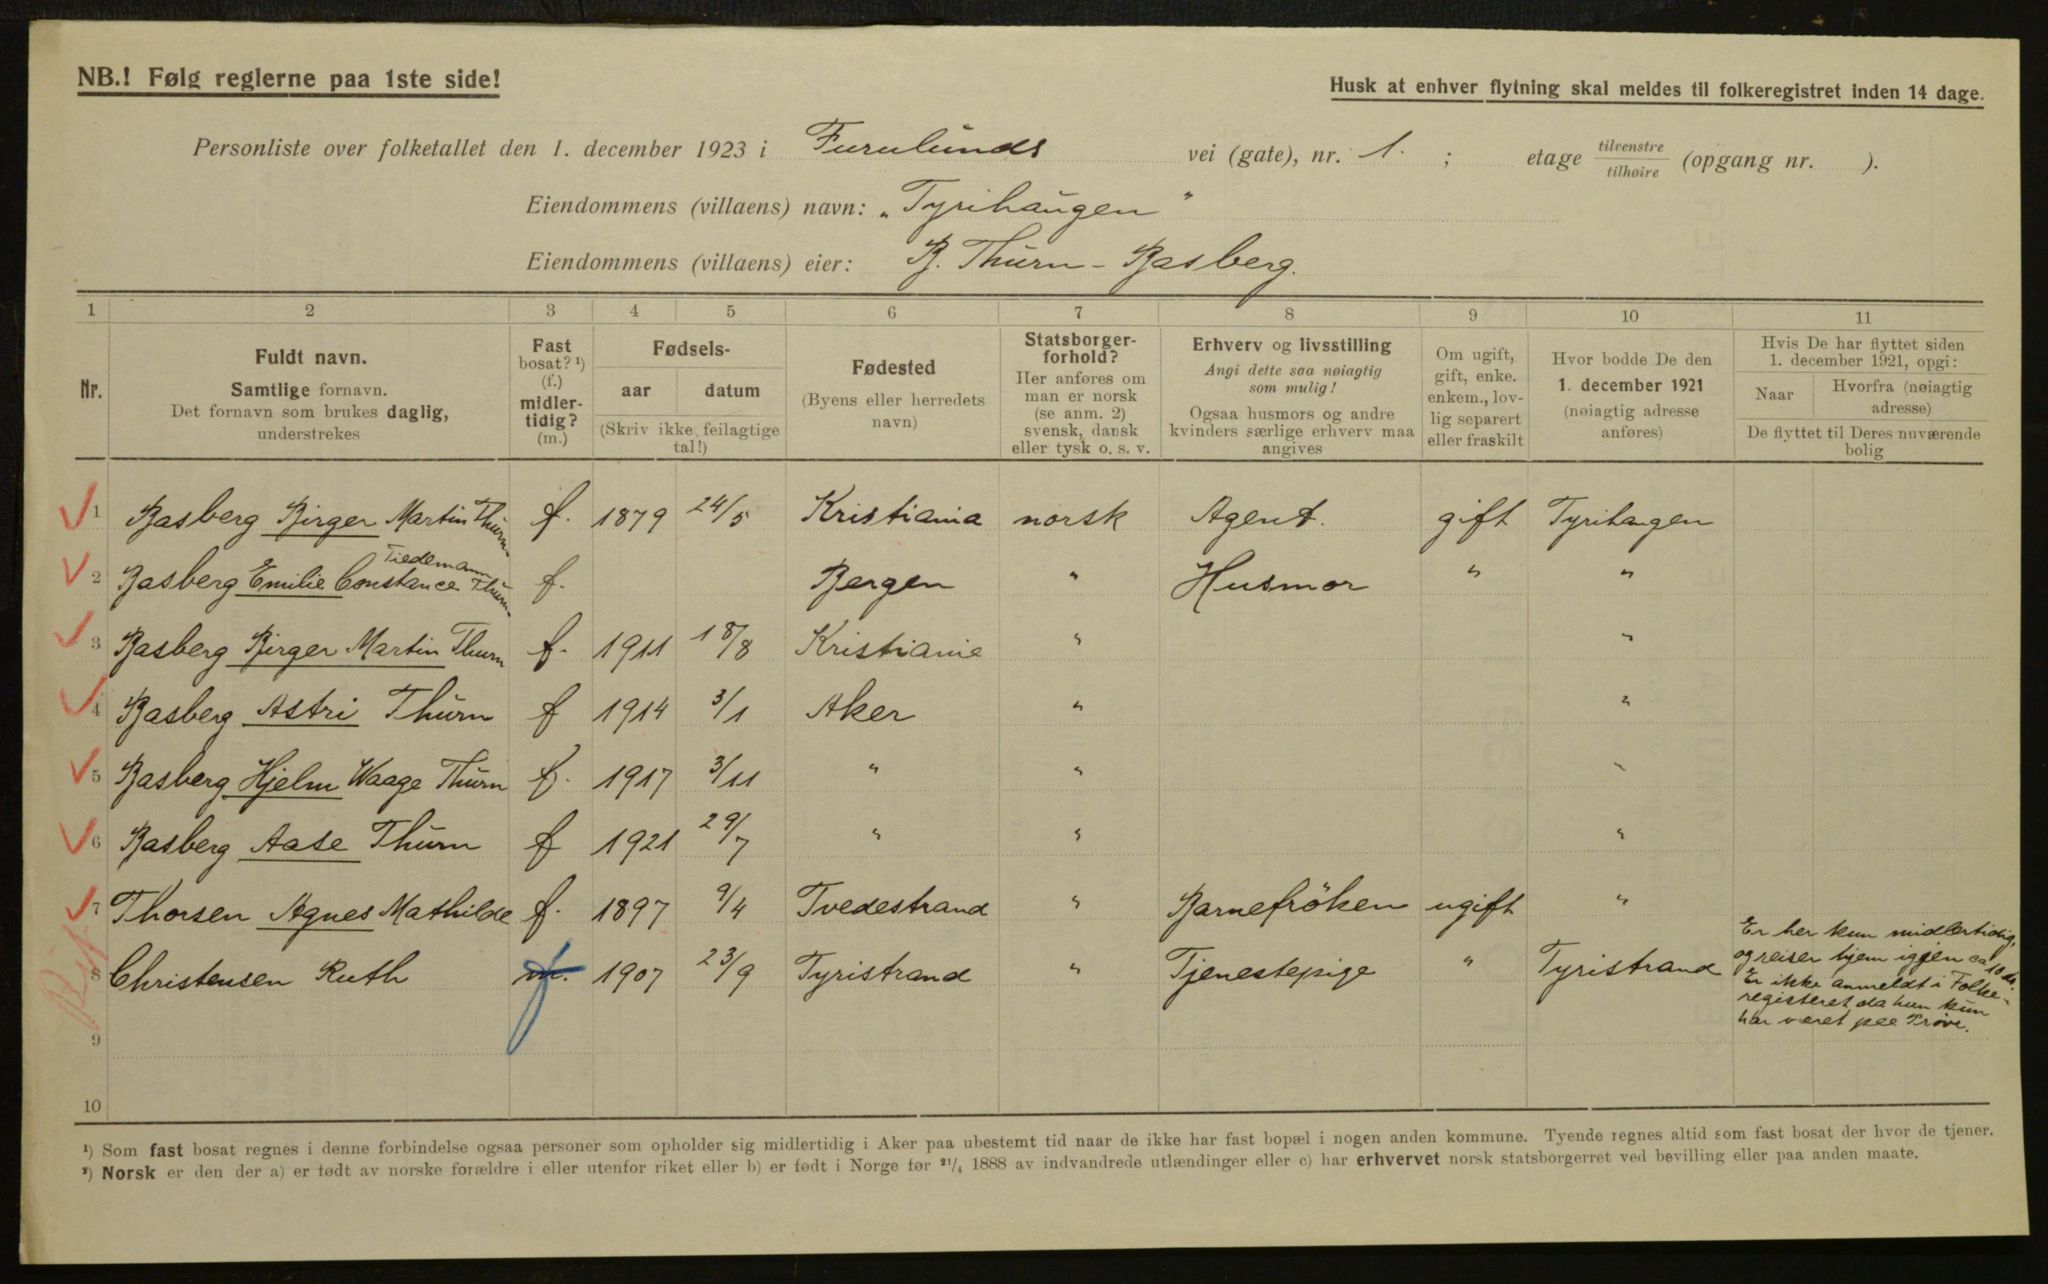 NB.! Følg reglerne paa 1ste side!
Husk at enhver flytning skal meldes til folkeregistret inden 14 dage.
Personliste over folketallet den 1. december 1923 i Furulunds vei (gate), nr. 1. ; etage tilvenstre / tilhøire (opgang nr. ).
Eiendommens (villaens) navn: „Tyrihaugen"
Eiendommens (villaens) eier: B. Thurn-Basberg.
1 2 3 4 5 6 7 8 9 10 11
Nr.
Fuldt navn.
Samtlige fornavn.
Det fornavn som brukes daglig,
understrekes
Fast
bosat? ¹)
(f.)
midler-
tidig?
(m.)
Fødsels-
aar datum
(Skriv ikke feilagtige
tal!)
Fødested
(Byens eller herredets
navn)
Statsborger-
forhold?
Her anføres om
man er norsk
(se anm. 2)
svensk, dansk
eller tysk o. s. v.
Erhverv og livsstilling
Angi dette saa nøiagtig
som mulig!
Ogsaa husmors og andre
kvinders særlige erhverv maa
angives
Om ugift,
gift, enke.
enkem., lov-
lig separert
eller fraskilt
Hvor bodde De den
1. december 1921
(nøiagtig adresse
anføres)
Hvis De har flyttet siden
1. december 1921, opgi:
Naar Hvorfra (nøiagtig
adresse)
De flyttet til Deres nuværende
bolig
1 Basberg Birger Martin Thurn- f. 1879 24/5 Kristiania norsk Agent. gift Tyrihaugen
2 Basberg Emilie Constance Tiedemann Thurn- f. Bergen " Husmor " "
3 Basberg Birger Martin Thurn f. 1911 18/8 Kristiania " "
4 Basberg Astri Thurn f 1914 3/1 Aker " "
5 Basberg Hjelm Waage Thurn f. 1917 3/11 " " "
6 Basberg Aase Thurn f 1921 29/7 " " "
7 Thorsen Agnes Mathilde f. 1897 9/4 Tvedestrand " Barnefröken ugift "
8 Christensen Ruth m. f 1907 23/9 Tyristrand " Tjenestepige " Tyristrand
Er her kun midlertidig,
og reiser hjem igjen ca 10 ds.
Er ikke anmeldt i Folke-
registeret, da hun kun
har været paa Prøve.
9
10
¹) Som fast bosat regnes i denne forbindelse ogsaa personer som opholder sig midlertidig i Aker paa ubestemt tid naar de ikke har fast bopæl i nogen anden kommune. Tyende regnes altid som fast bosat der hvor de tjener.
²) Norsk er den der a) er født av norske forældre i eller utenfor riket eller b) er født i Norge før ²¹/₄ 1888 av indvandrede utlændinger eller c) har erhvervet norsk statsborgerret ved bevilling eller paa anden maate.